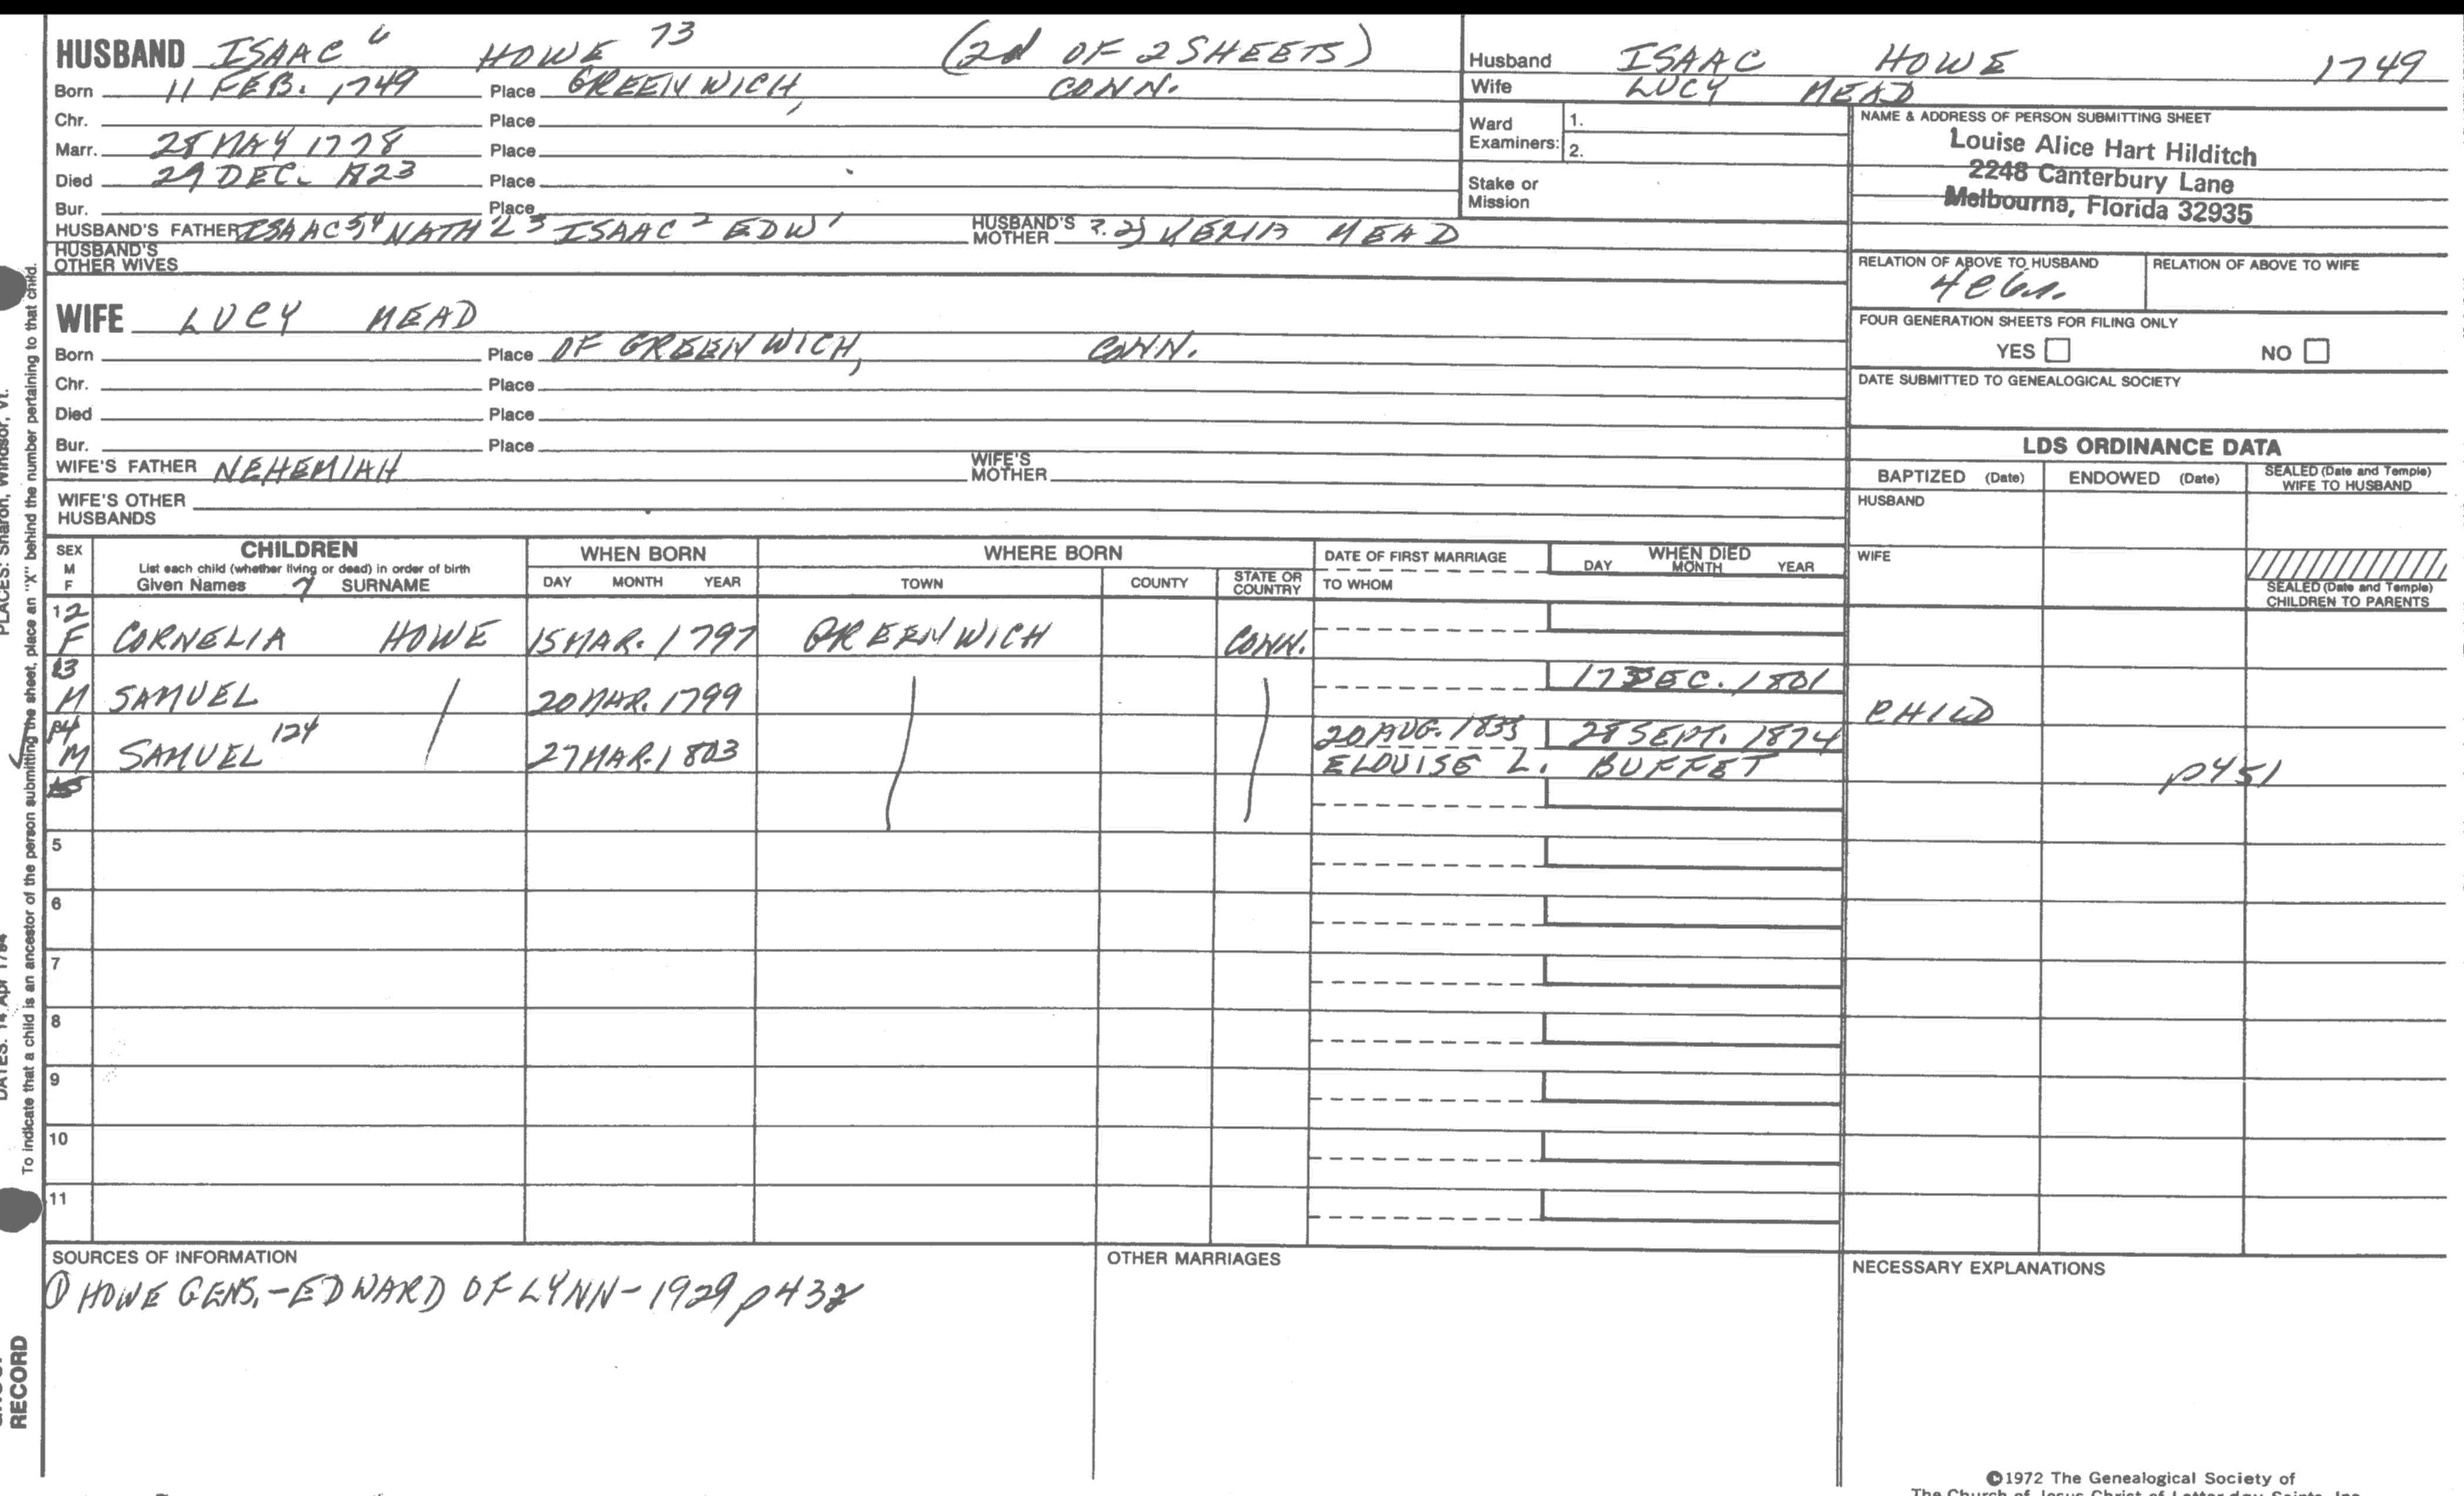 HUSBAND ISAAC 6 HOWE 73 (2d OF 2 SHEETS)
Born 11 FEB. 1749 Place GREENWICH, CONN.
Chr. Place
Marr. 28 MAY 1778 Place
Died 29 DEC. 1823 Place
Bur. Place
HUSBAND'S FATHER ISAAC 5, 4 NATH'L 3 ISAAC 2 EDW 1 HUSBAND'S MOTHER MEAD
HUSBAND'S OTHER WIVES
WIFE LUCY MEAD
Born Place OF GREENWICH, CONN.
Chr. Place
Died Place
Bur. Place
WIFE'S FATHER NEHEMIAH WIFE'S MOTHER
WIFE'S OTHER HUSBANDS
Husband ISAAC HOWE 1749
Wife LUCY MEAD
Ward Examiners: 1.
2.
Stake or Mission
NAME & ADDRESS OF PERSON SUBMITTING SHEET
Louise Alice Hart Hilditch
2248 Canterbury Lane
Melbourna, Florida 32935
RELATION OF ABOVE TO HUSBAND RELATION OF ABOVE TO WIFE
FOUR GENERATION SHEETS FOR FILING ONLY
YES NO
DATE SUBMITTED TO GENEALOGICAL SOCIETY
LDS ORDINANCE DATA
BAPTIZED (Date) ENDOWED (Date) SEALED (Date and Temple) WIFE TO HUSBAND
HUSBAND
WIFE
SEALED (Date and Temple)
CHILDREN TO PARENTS
SEX M F
CHILDREN
List each child (whether living or dead) in order of birth
Given Names 7 SURNAME
WHEN BORN
DAY MONTH YEAR
WHERE BORN
TOWN COUNTY STATE OR COUNTRY
DATE OF FIRST MARRIAGE
TO WHOM
WHEN DIED
DAY MONTH YEAR
12 F CORNELIA HOWE 15 MAR. 1797 GREENWICH CONN.
13 M SAMUEL 20 MAR. 1799 17 DEC. 1801 CHILD
14 M SAMUEL 124 27 MAR. 1803 20 AUG. 1833 28 SEPT. 1874
ELOUISE L. BUFFET p451
5
6
7
8
9
10
11
SOURCES OF INFORMATION
① HOWE GENS.-EDWARD OF LYNN-1929 p432
OTHER MARRIAGES
NECESSARY EXPLANATIONS
©1972 The Genealogical Society of
The Church of Jesus Christ of Latter-day Saints, Inc.
PLACES: Sharon, Windsor, Vt.
To indicate that a child is an ancestor of the person submitting the sheet, place an "X" behind the number pertaining to that child.
DATES: 14 Apr 1794
RECORD